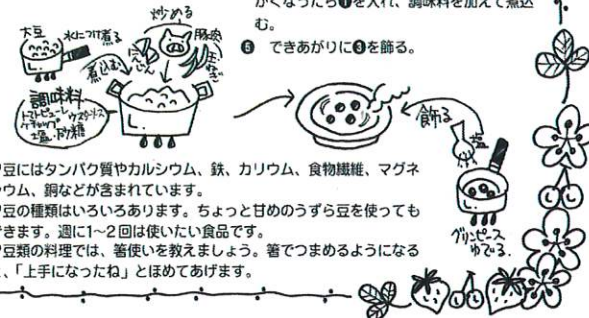 かくなったら❶を入れ、調味料を加えて煮込
む。
❺ できあがりに❸を飾る。
炒める
大豆
水につけ煮る
豚肉
にんじん
玉ねぎ
煮込む
調味料
トマトピューレ
ケチャップ ウスターソース
塩・砂糖
飾る
塩
グリンピース
ゆでる。
豆にはタンパク質やカルシウム、鉄、カリウム、食物繊維、マグネ
ウム、銅などが含まれています。
豆の種類はいろいろあります。ちょっと甘めのうずら豆を使っても
きます。週に1~2回は使いたい食品です。
豆類の料理では、箸使いを教えましょう。箸でつまめるようになる
、「上手になったね」とほめてあげます。